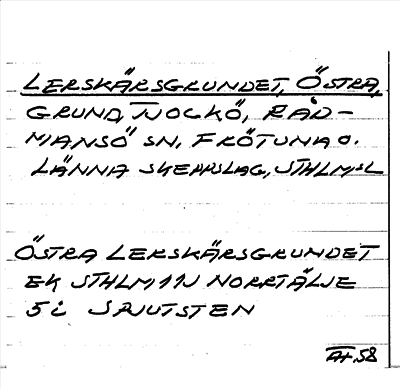 LERSKÄRSGRUNDET, ÖSTRA,
GRUND, TJOCKÖ, RÅD-
MANSÖ SN, FRÖTUNA O.
LÄNNA SKEPPSLAG, STHLMSL
ÖSTRA LERSKÄRSGRUNDET
EK STHLM 11J NORRTÄLJE
5i SPJUTSTEN
58